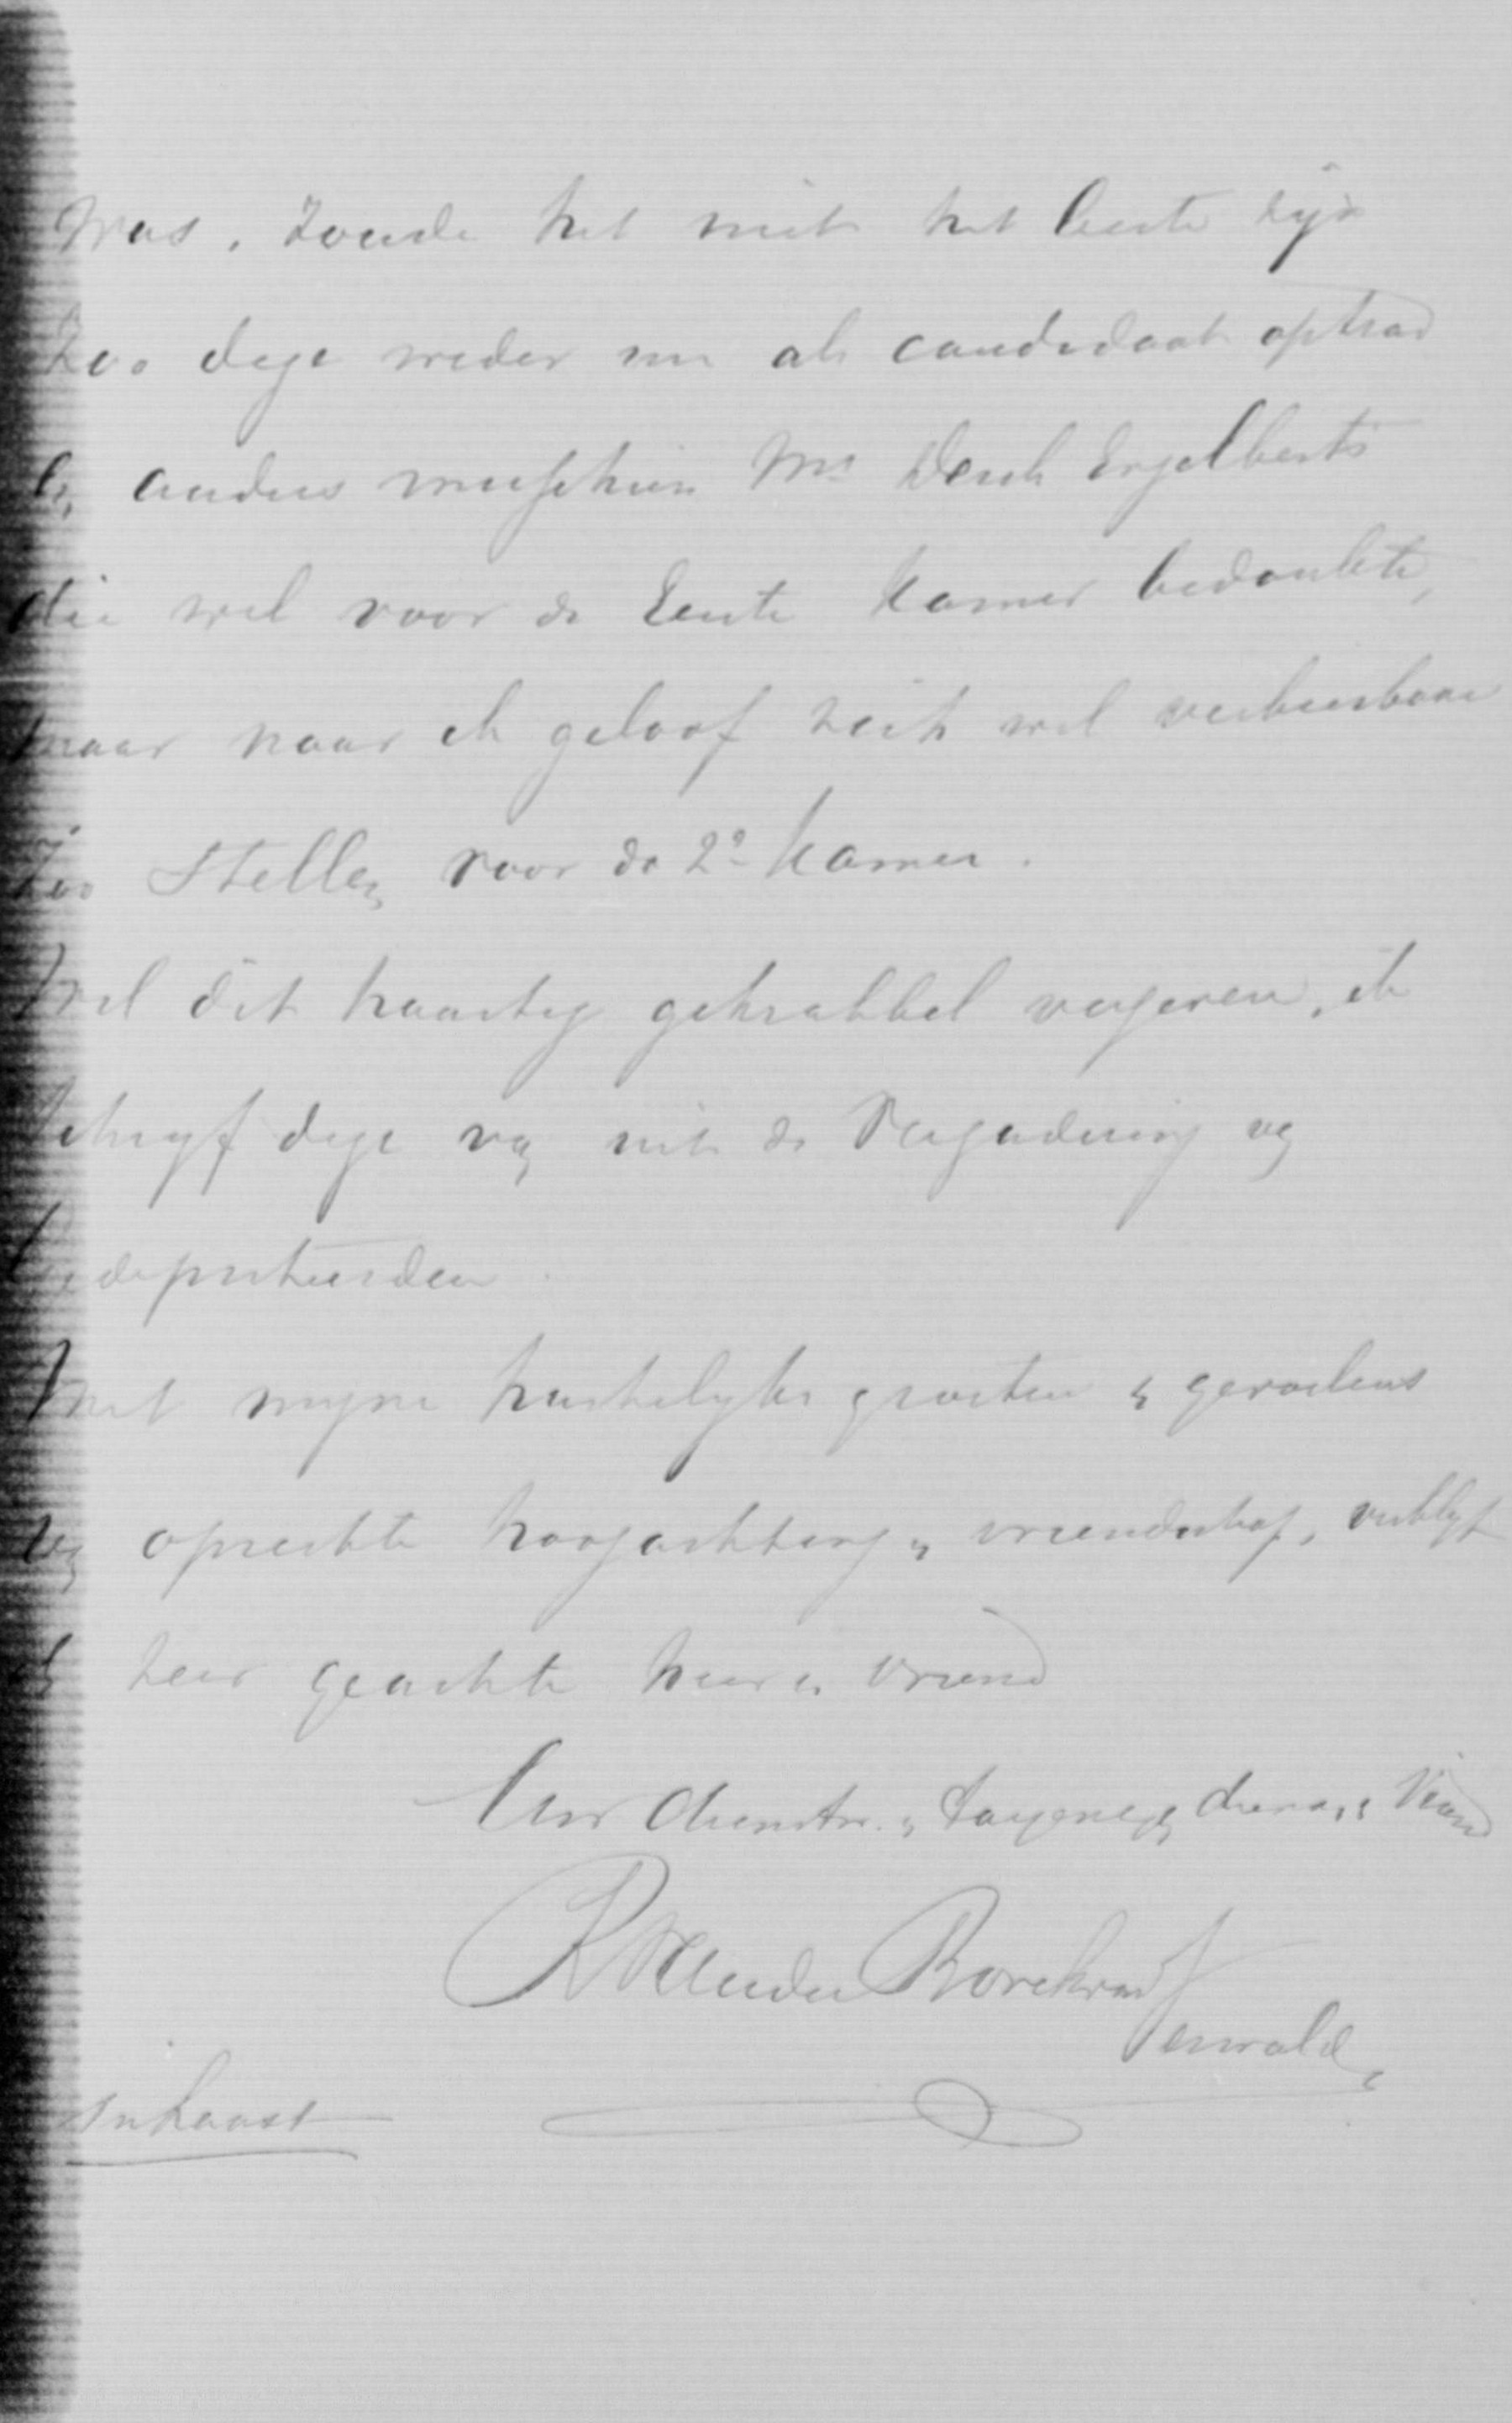 was, zoude het niet het beste zijn
zoo deze weder nu als candidaat optrad
en anders misschien Mr Derk Engelberts
die wel voor de Eerste Kamer bedankte,
maar naar ik geloof zich wel
zoo stellen voor de 2e Kamer.
Wil dit haastig gekrabbel vergeven, ik
schryf deze van uit de Vergadering van
Gedeputeerden.
Met myne hartelyke groeten & gevoelens
van oprechte hoogachting en vriendschap, verblyf
ik zeer geachte heer en vriend
Uw dienstw. en toegeneg dienaar & Vriend
Sandberg
in haast